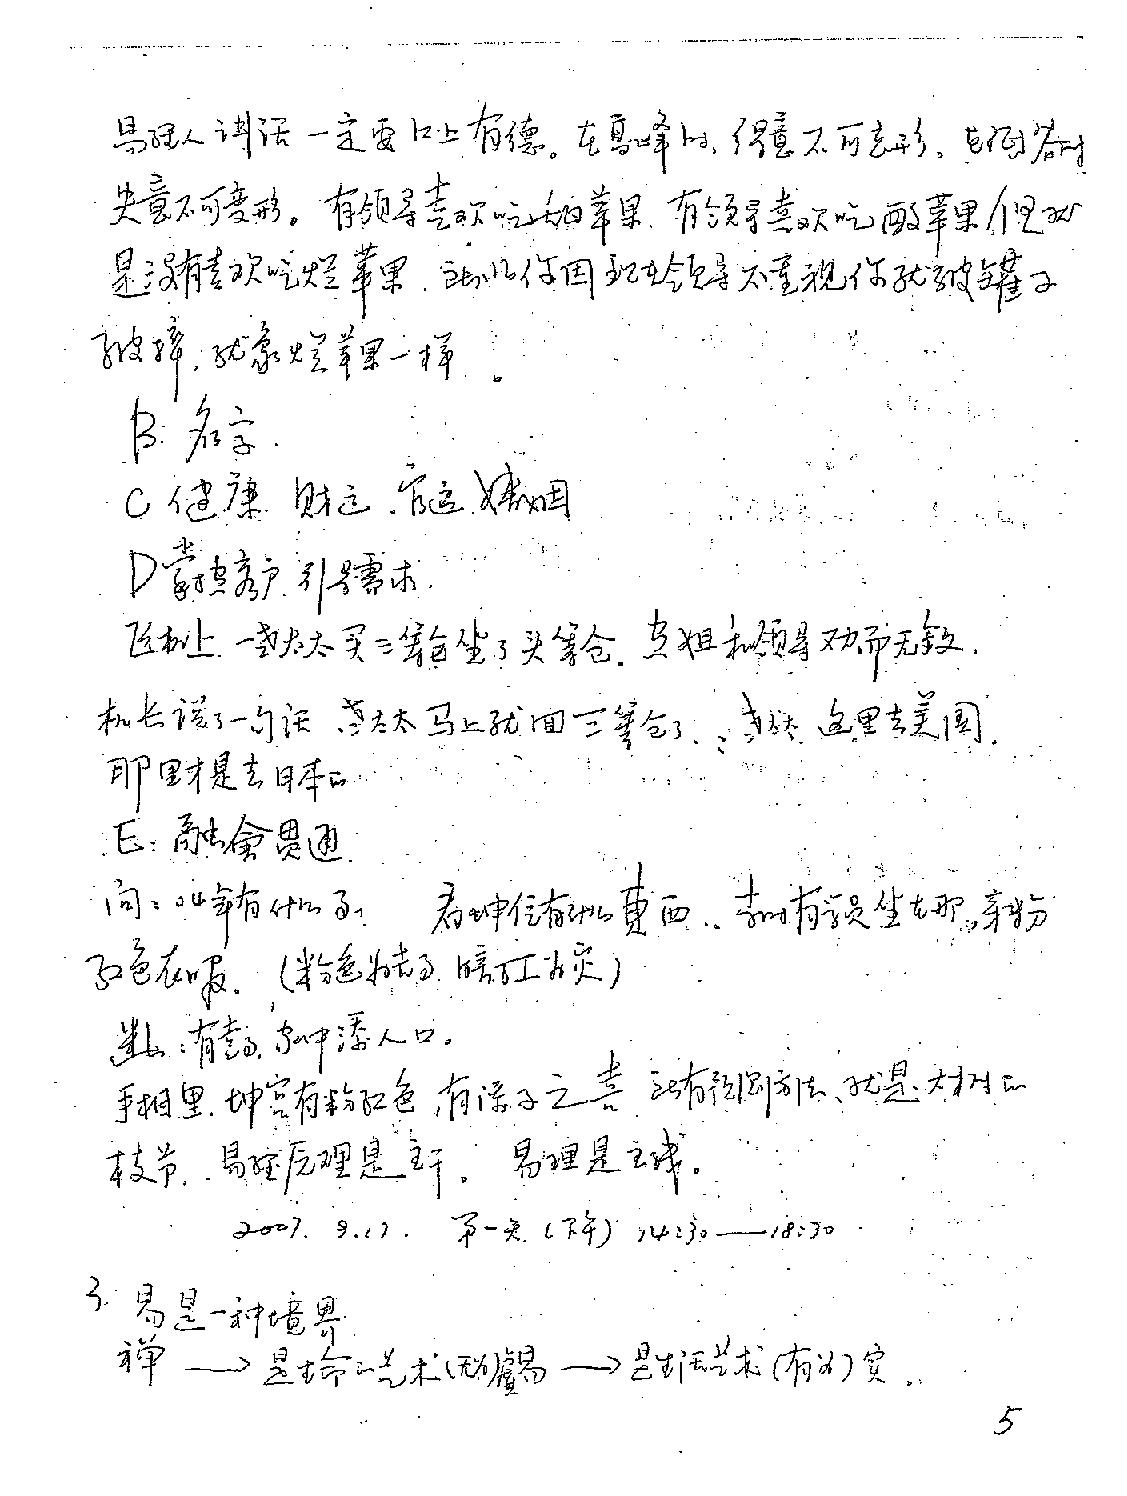 易经人讲话一定要口上有德。在高峰时、得意不可忘形、在低谷时
失意不可变形。有领导喜欢吃甜苹果、有领导喜欢吃酸苹果但
是没有喜欢吃烂苹果、你因现在领导不重视你就破罐子
破摔,就象烂苹果一样。
B. 名字.
C 健康 财运.官运.婚姻
D 客户.引导需求.
飞机上.一老太太买三等舱坐了头等仓.空姐和领导劝而无效.
机长说了一句话 老太太马上就回三等仓了.:老太太 这里去美国.
那里才是去日本的
E:融會贯通
问:04年有什么事、 看坤位有什么東西..有学员坐在那。穿粉
红色衣服。(粉色为吉事.暗红为灾)
断:有喜事.家中添人口。
手相里.坤宫有粉红色,有得子之喜 所有预测方法、就是大树的
枝节、易经原理是主干。易理是主线。
2007. 9.17. 第一天(下午) 14:30——18:30
3. 易是一种境界
禅 → 是生命的艺术(无为)虚易 → 是生活艺术(有为)实..
5